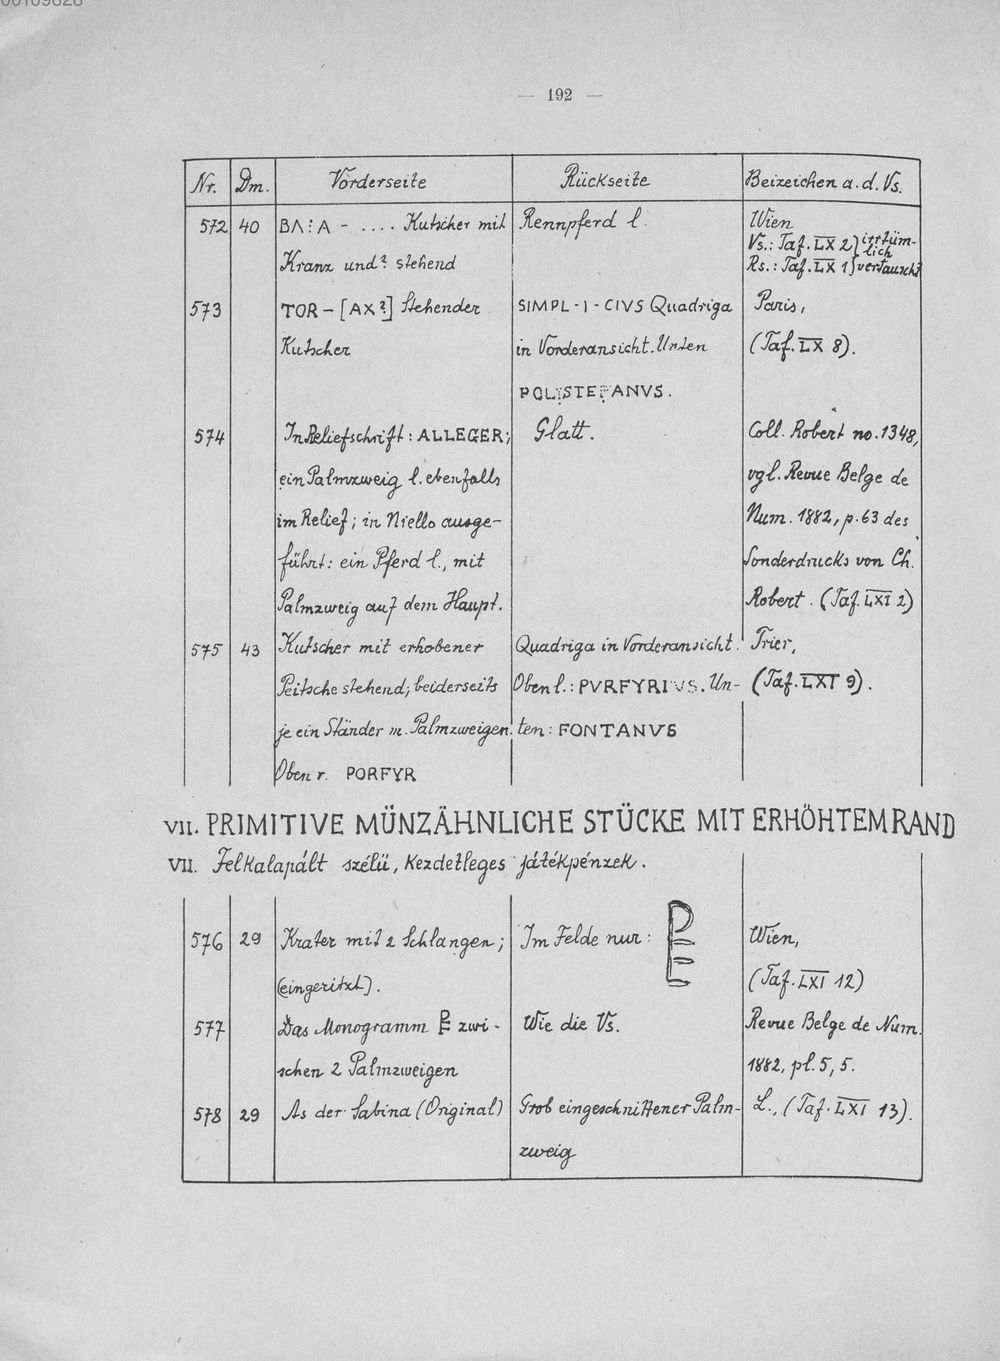 00109828
— 192 —
Nr. Dm. Vorderseite Rückseite Beizeichen a. d. Vs.
572 40 BΛ:A - .... Kutscher mit Rennpferd l. Wien
Vs.: Taf. LX 2) irrtüm-
lich
Kranz und? stehend Rs.: Taf. LX 1) vertauscht
573 TOR – [AX?] Stehender SIMPL - I - CIVS Quadriga Paris,
Kutscher in Vorderansicht. Unten (Taf. LX 8).
POLYSTEFANVS.
574 In Reliefschrift: ALLEGER; Glatt. Coll. Robert no. 1348,
ein Palmzweig l. ebenfalls vgl. Revue Belge de
im Relief; in Niello ausge- Num. 1882, p. 63 des
führt: ein Pferd l., mit Sonderdrucks von Ch.
Palmzweig auf dem Haupt. Robert. (Taf. LXI 2)
575 43 Kutscher mit erhobener Quadriga in Vorderansicht. Trier,
Peitsche stehend; beiderseits Oben l.: PVRFYRIVS. Un- (Taf. LXI 9).
je ein Ständer m. Palmzweigen. ten: FONTANVS
Oben r. PORFYR
VII. PRIMITIVE MÜNZÄHNLICHE STÜCKE MIT ERHÖHTEM RAND
VII. Felkalapált szélü, kezdetleges játékpénzek.
576 29 Krater mit 2 Schlangen; Im Felde nur: PE Wien,
(eingeritzt). (Taf. LXI 12)
577 Das Monogramm PE zwi- Wie die Vs. Revue Belge de Num.
schen 2 Palmzweigen 1882, pl. 5, 5.
578 29 As der Sabina (Original) Grob eingeschnittener Palm- L., (Taf. LXI 13).
zweig